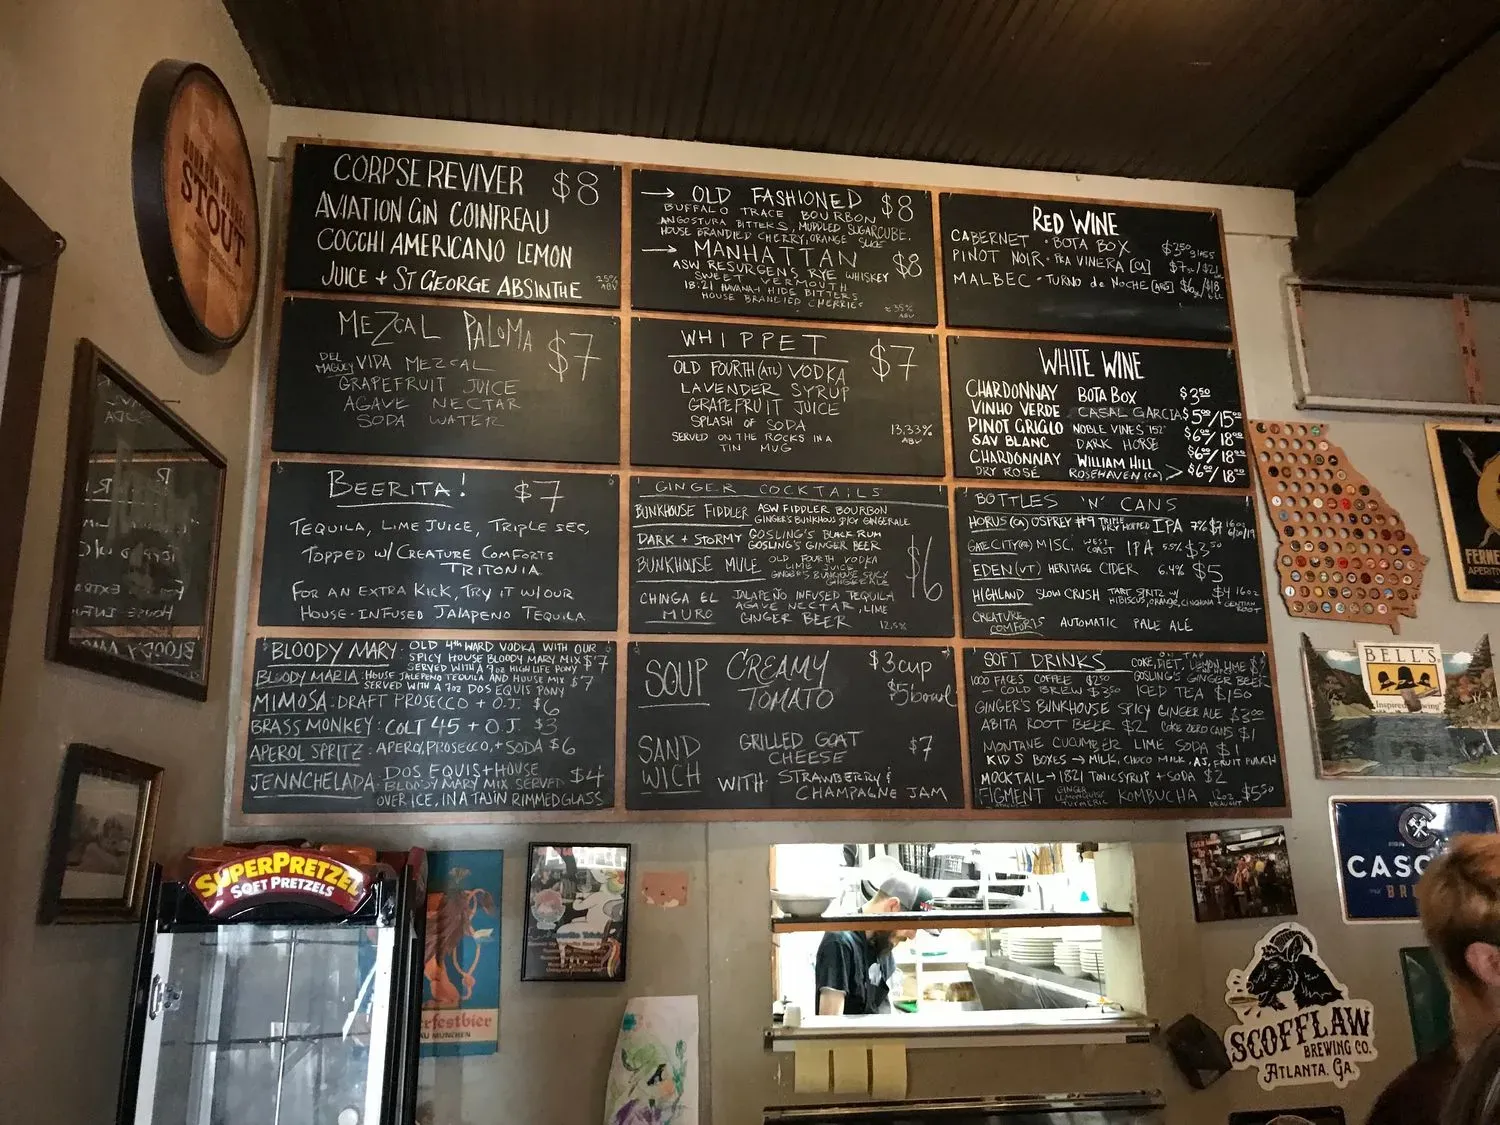 CORPSE REVIVER $8
AVIATION GIN COINTREAU
COCCHI AMERICANO LEMON
JUICE + ST GEORGE ABSINTHE
25% ABV
→ OLD FASHIONED $8
BUFFALO TRACE BOURBON
ANGOSTURA BITTERS, MUDDLED SUGARCUBE,
HOUSE BRANDIED CHERRY, ORANGE SLICE
→ MANHATTAN $8
ASW RESURGENS RYE WHISKEY
SWEET VERMOUTH
18.21 HAVANA + HIDE BITTERS
HOUSE BRANDIED CHERRIES
≈ 35% ABV
RED WINE
CABERNET · BOTA BOX $3.50 glass
PINOT NOIR · PRA VINERA [CA]
MALBEC · TURNO de NOCHE [ARG]
MEZCAL PALOMA $7
DEL MAGUEY VIDA MEZCAL
GRAPEFRUIT JUICE
AGAVE NECTAR
SODA WATER
WHIPPET $7
OLD FOURTH (ATL) VODKA
LAVENDER SYRUP
GRAPEFRUIT JUICE
SPLASH OF SODA
SERVED ON THE ROCKS IN A
TIN MUG
13.33% ABV
WHITE WINE
CHARDONNAY BOTA BOX $3.50
VINHO VERDE CASAL GARCIA $5.00/15.00
PINOT GRIGIO NOBLE VINES '152' $6.00/18.00
SAV BLANC DARK HORSE $6.00/18.00
CHARDONNAY WILLIAM HILL
DRY ROSÉ ROSEHAVEN (CA) > $6.00/18.00
BEERITA! $7
TEQUILA, LIME JUICE, TRIPLE SEC,
TOPPED W/ CREATURE COMFORTS
TRITONIA
FOR AN EXTRA KICK, TRY IT W/ OUR
HOUSE-INFUSED JALAPENO TEQUILA
GINGER COCKTAILS
BUNKHOUSE FIDDLER ASW FIDDLER BOURBON
GINGER'S BUNKHOUS SPICY GINGERALE
DARK + STORMY GOSLING'S BLACK RUM
GOSLING'S GINGER BEER
BUNKHOUSE MULE OLD FOURTH VODKA
LIME JUICE
GINGER'S BUNKHOUSE SPICY
GINGERALE
$6
CHINGA EL MURO JALAPEÑO INFUSED TEQUILA
AGAVE NECTAR, LIME
GINGER BEER
12.5%
BOTTLES 'N' CANS
HORUS (CA) OSPREY #9 TRIPLE DRY HOPPED IPA 7%
GATE CITY (GA) MISC. WEST COAST IPA 5.5% $3.50
EDEN (VT) HERITAGE CIDER 6.4% $5
HIGHLAND SLOW CRUSH TART SPRITZ W/ HIBISCUS, ORANGE, CINCHONA + GENTIAN ROOT $4 16oz
CREATURE COMFORTS AUTOMATIC PALE ALE
BLOODY MARY: OLD 4th WARD VODKA WITH OUR
SPICY HOUSE BLOODY MARY MIX $7
SERVED WITH A 7oz HIGH LIFE PONY
BLOODY MARIA: HOUSE JALEPENO TEQUILA AND HOUSE MIX $7
SERVED WITH A 7oz DOS EQUIS PONY
MIMOSA: DRAFT PROSECCO + O.J. $6
BRASS MONKEY: COLT 45 + O.J. $3
APEROL SPRITZ: APEROL, PROSECCO, + SODA $6
JENNCHELADA: DOS EQUIS + HOUSE
BLOODY MARY MIX SERVED $4
OVER ICE, IN A TAJIN RIMMED GLASS
SOUP CREAMY TOMATO $3 cup
$5 bowl
SANDWICH GRILLED GOAT CHEESE $7
WITH STRAWBERRY & CHAMPAGNE JAM
SOFT DRINKS ON TAP
COKE, DIET, LEMON, LIME
1000 FACES COFFEE $2.50 GOSLING'S GINGER BEER
– COLD BREW $3.50 ICED TEA $1.50
GINGER'S BUNKHOUSE SPICY GINGER ALE $3.00
ABITA ROOT BEER $2 COKE ZERO CANS $1
MONTANE CUCUMBER LIME SODA $1
KIDS BOXES → MILK, CHOCO MILK, AJ, FRUIT PUNCH
MOCKTAIL → 1821 TONIC SYRUP + SODA $2
FIGMENT GINGER LEMONGRASS TURMERIC KOMBUCHA 12oz DRAUGHT $5.50
STOUT
SUPERPRETZEL
SOFT PRETZELS
BELL'S
Inspired Brewing
SCOFFLAW
BREWING CO.
ATLANTA, GA.